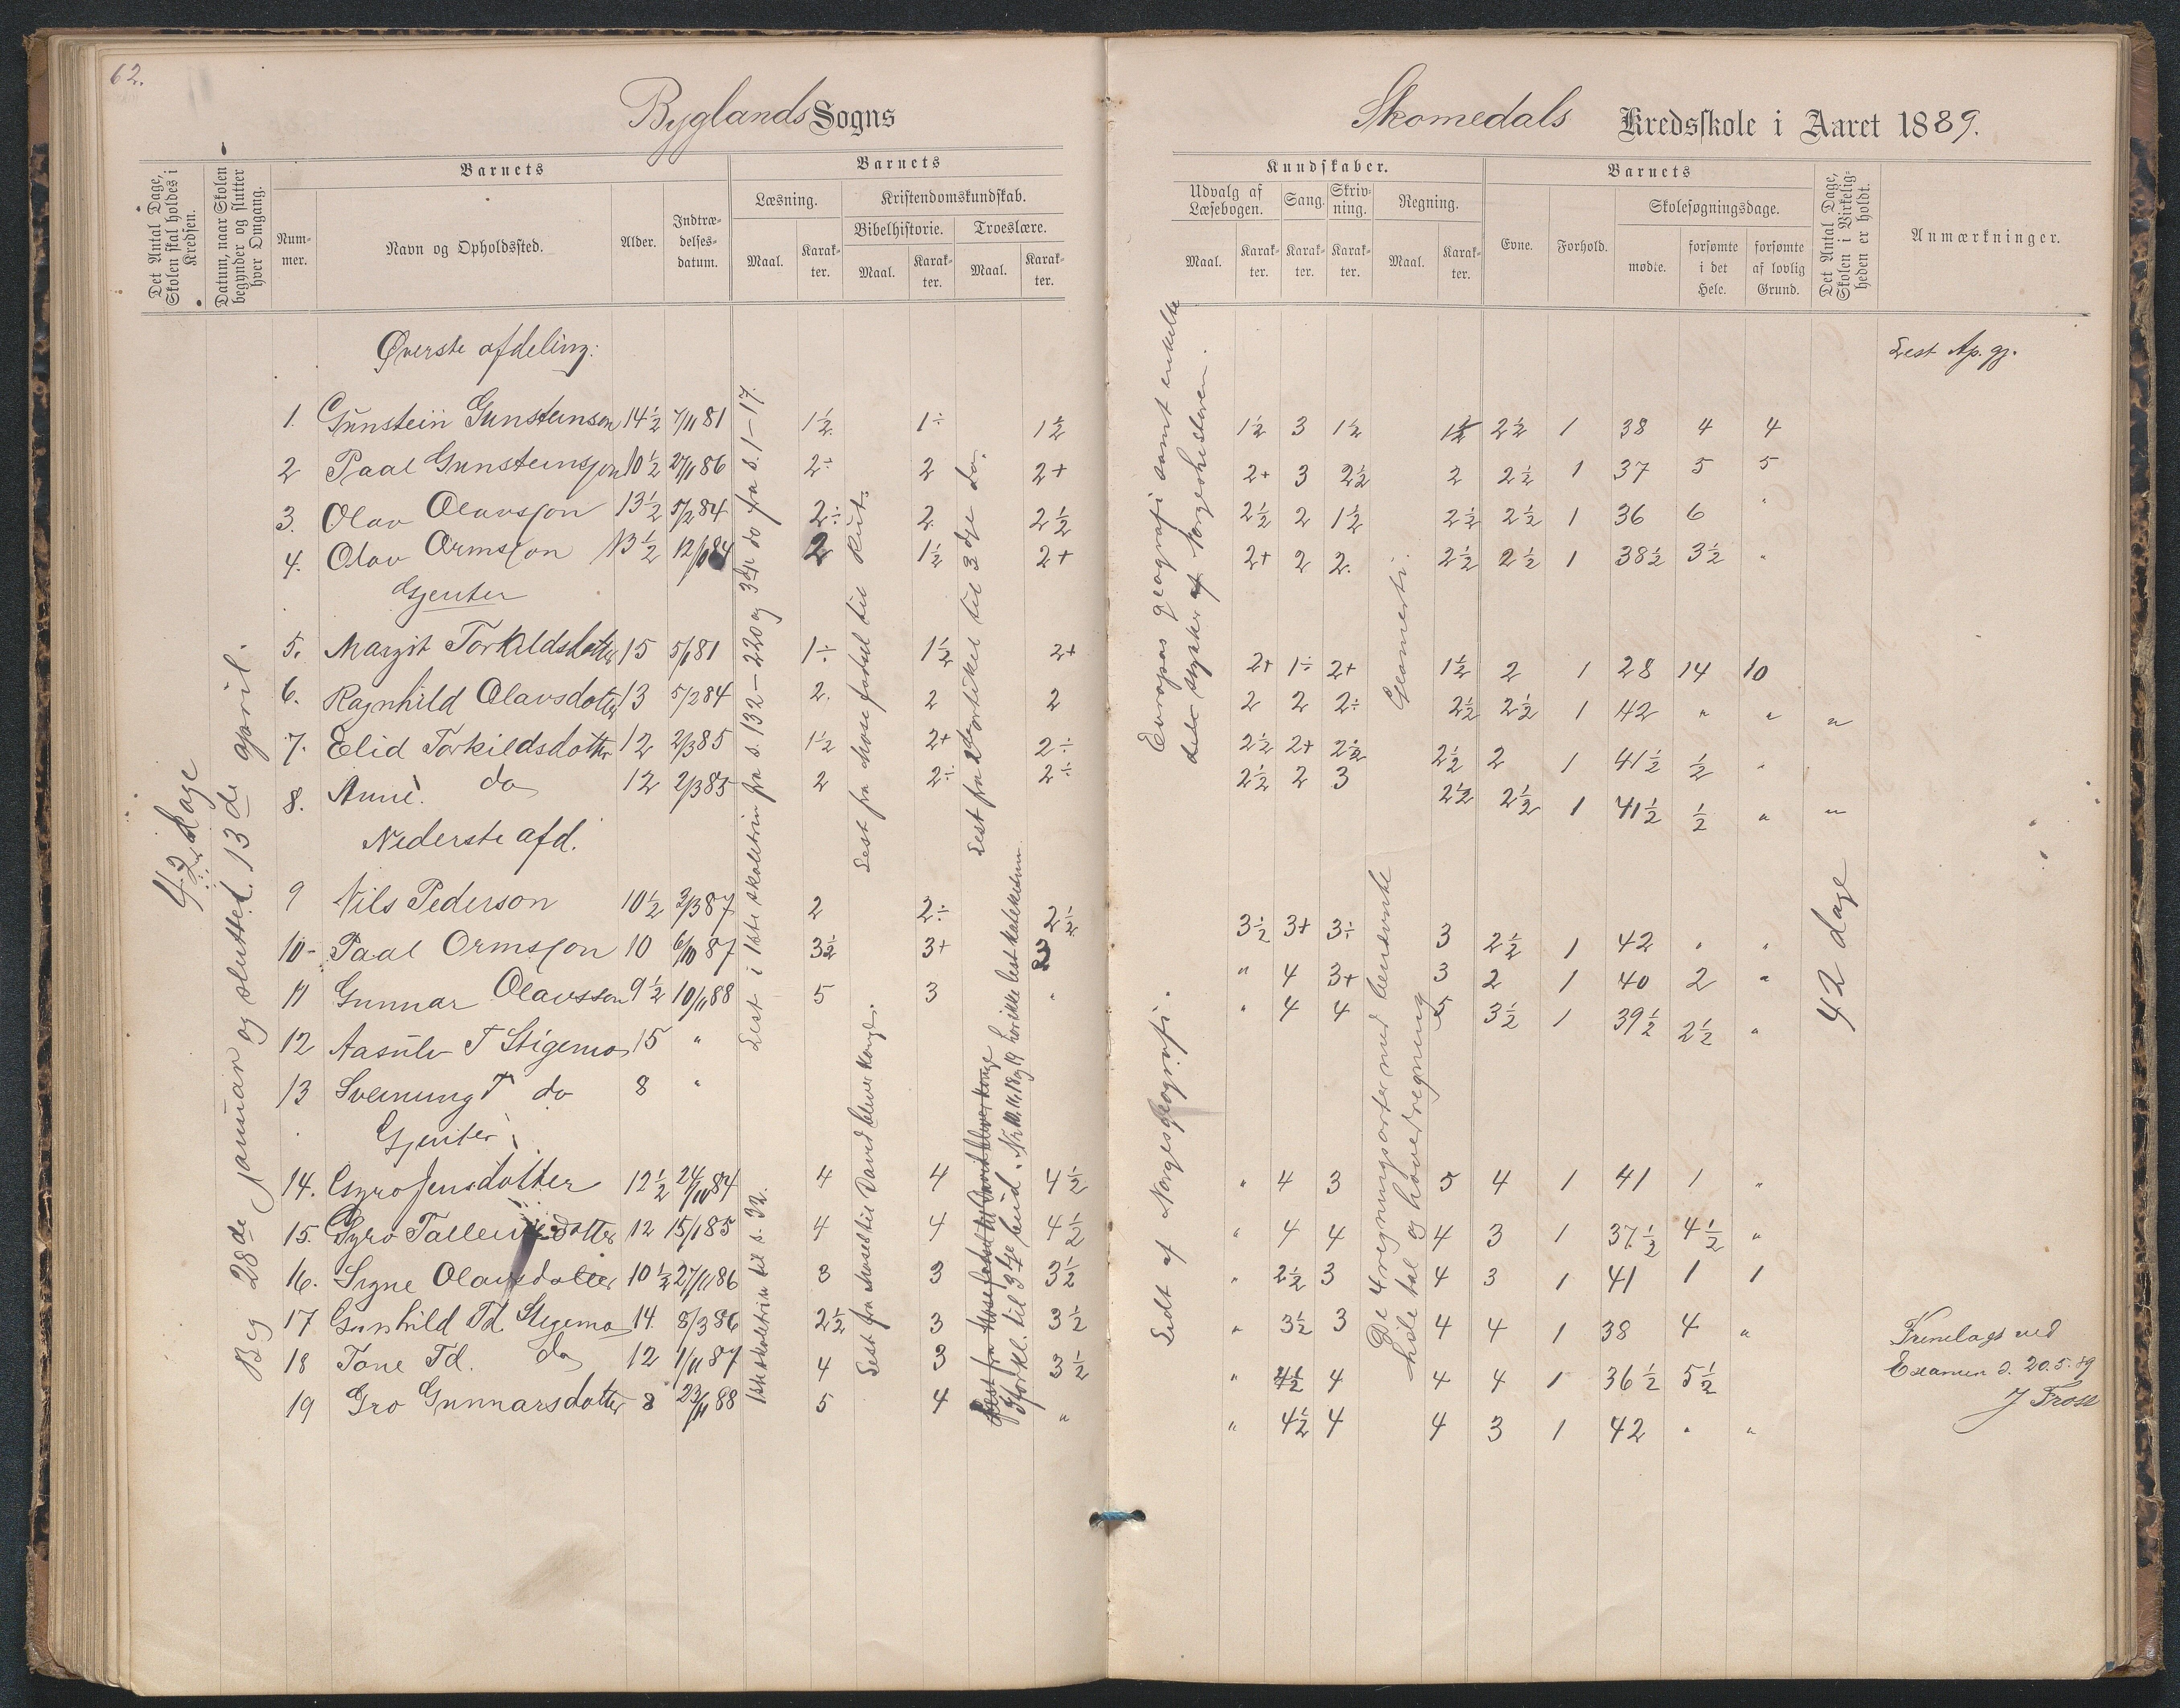 62.
Byglands Sogns
Det Antal Dage, Skolen skal holdes i Kredsen.
Datum, naar Skolen begynder og slutter hver Omgang.
Barnets
Nummer.
Navn og Opholdssted.
Alder.
Indtrædelsesdatum.
Barnets
Læsning.
Kristendomskundskab.
Bibelhistorie.
Troeslære.
Maal. Karakter. Maal. Karakter. Maal. Karakter.
42 dage
Beg 28de januar og sluttet 13de april.
Øverste afdeling:
1. Gunstein Gunsteinson 14½ 7/11 81 1½ 1÷ 1½
2 Paal Gunsteinsson 10½ 27/11 86 2÷ 2 2+
3. Olav Olavsson 13½ 5/2 84 2÷ 2 2½
4. Olav Ormsson 13½ 12/1 84 2 1½ 2+
Gjenter
5. Margit Torkildsdotter 15 5/1 81 1÷ 1½ 2+
6. Ragnhild Olavsdotter 13 5/2 84 2. 2 2
7. Elid Torkildsdotter 12 2/3 85 1½ 2+ 2÷
8. Anne. do 12 2/3 85 2 2÷ 2÷
Nederste afd.
9 Nils Pederson 10½ 2/3 87 2 2÷ 2½
10- Paal Ormsson 10 6/10 87 3½ 3+ 3
11 Gunnar Olavsson 9½ 10/11 88 5 3 "
12 Aasulv T Stigemo 15 "
13 Sveinung T do 8 "
Gjenter
14. Gyro Jensdotter 12½ 24/11 84 4 4 4½
15. Gyro Talleivsdotter 12 15/1 85 4 4 4½
16. Signe Olavsdotter 10½ 27/11 86 3 3 3½
17 Gunhild Td. Stigemo 14 8/3 86 2½ 3 3½
18 Tone Td. do 12 1/11 87 4 3 3½
19 Gro Gunnarsdotter 8 23/11 88 5 4 "
Lest i 1ste skoletrin fra s. 132-220 og 3die do fra s. 1-17.
1ste skoletrin til s. 92.
Lest fra Mose fødsel til Rut.
Lest fra Moses til David blever konge.
Lest fra 2 artikel til 3dje do.
Lest fra Mose fødsel til David blever konge
forkl. til 3dje bud. Nr. 10. 11, 18 og 19 har ikke lest katekismen
Skomedals Kredsskole i Aaret 1889.
Kundskaber.
Udvalg af Læsebogen.
Sang.
Skrivning.
Regning.
Maal. Karakter. Karakter. Karakter. Maal. Karakter.
Barnets
Evne.
Forhold.
Skolesøgningsdage.
mødte.
forsømte i det Hele.
forsømte af lovlig Grund.
Det Antal Dage, Skolen i Virkeligheden er holdt.
Anmærkninger.
Lest Ap. gj.
Europas geografi samt enkelte
dele stykker af Norgeshistorien.
Geometri.
1½ 3 1½ 1½ 2½ 1 38 4 4
2+ 3 2½ 2 2½ 1 37 5 5
2½ 2 1½ 2½ 2½ 1 36 6 "
2+ 2 2. 2½ 2½ 1 38½ 3½ "
2+ 1÷ 2+ 1½ 2 1 28 14 10
2 2 2÷ 2½ 2½ 1 42 " " "
2½ 2+ 2½ 2½ 2 1 41½ ½ "
2½ 2 3 2½ 2½ 1 41½ ½ " "
Lidt af Norgesgeografi.
De 4 regningsarter med benævnte
hele tal og hovedregning
42 dage
3½ 3+ 3÷ 3 2½ 1 42 " "
" 4 3+ 3 2 1 40 2 "
" 4 4 5 3½ 1 39½ 2½ "
" 4 3 5 4 1 41 1 "
" 4 4 4 3 1 37½ 4½ "
" 2½ 3 4 3 1 41 1 1
" 3½ 3 4 4 1 38 4 "
" 4½ 4 4 4 1 36½ 5½
" 4½ 4 4 3 1 42 " "
Fremlagt ved
Examen d. 20.5.89
J Frost